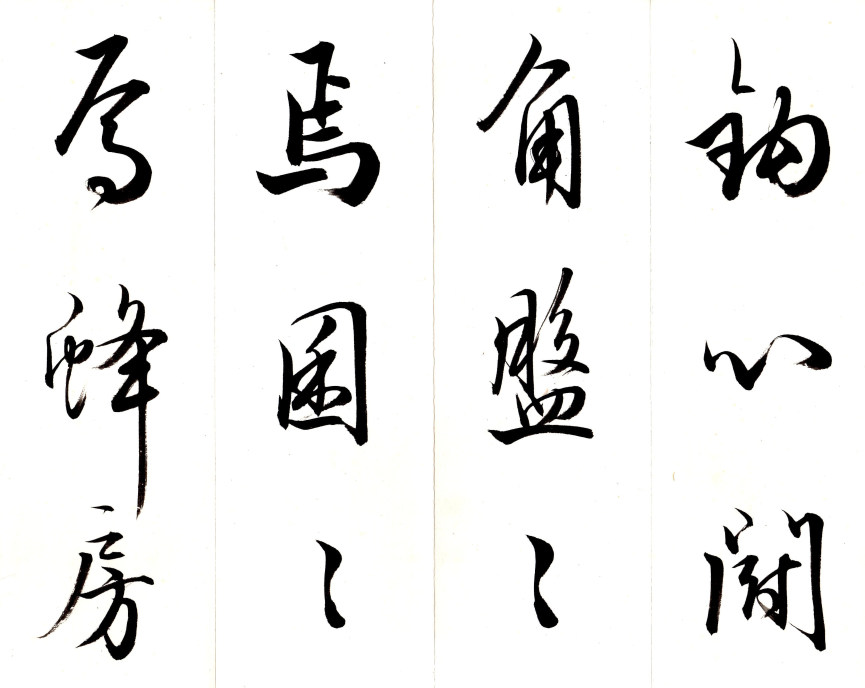 鈎心鬪
角盤〻
焉囷〻
焉蜂房